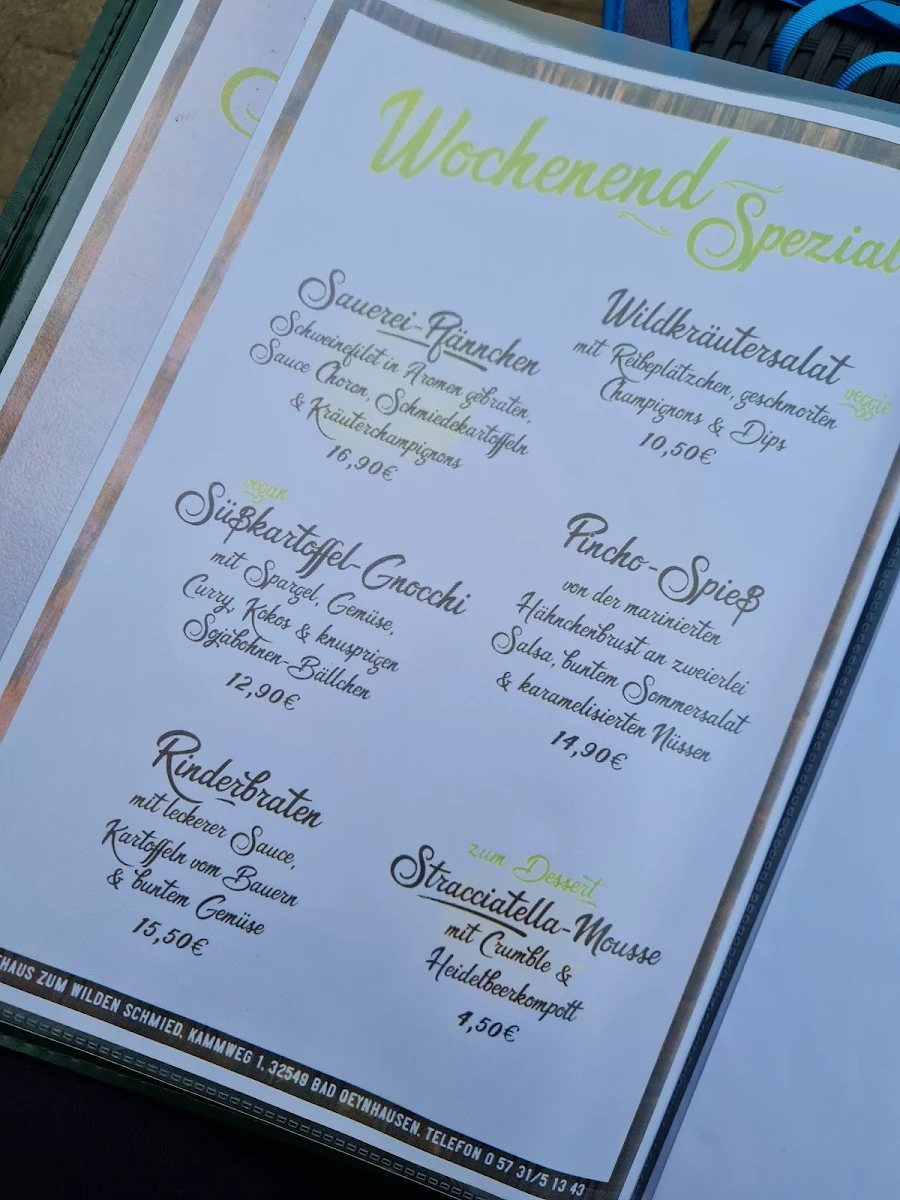 Wochenend
Spezial
Sauerei-Pfännchen
Schweinefilet in Aromen gebraten,
Sauce Choron, Schmiedekartoffeln
& Kräuterchampignons
16,90€
Wildkräutersalat
mit Reibeplätzchen, geschmorten
veggie
Champignons & Dips
10,50€
vegan
Süßkartoffel-Gnocchi
mit Spargel, Gemüse,
Curry, Kokos & knusprigen
Sojabohnen-Bällchen
12,90€
Pincho-Spieß
von der marinierten
Hähnchenbrust an zweierlei
Salsa, buntem Sommersalat
& karamelisierten Nüssen
14,90€
Rinderbraten
mit leckerer Sauce,
Kartoffeln vom Bauern
& buntem Gemüse
15,50€
zum Dessert
Stracciatella-Mousse
mit Crumble &
Heidelbeerkompott
4,50€
ZUM WILDEN SCHMIED, KAMMWEG 1, 32549 BAD OEYNHAUSEN, TELEFON 0 57 31/5 13 43